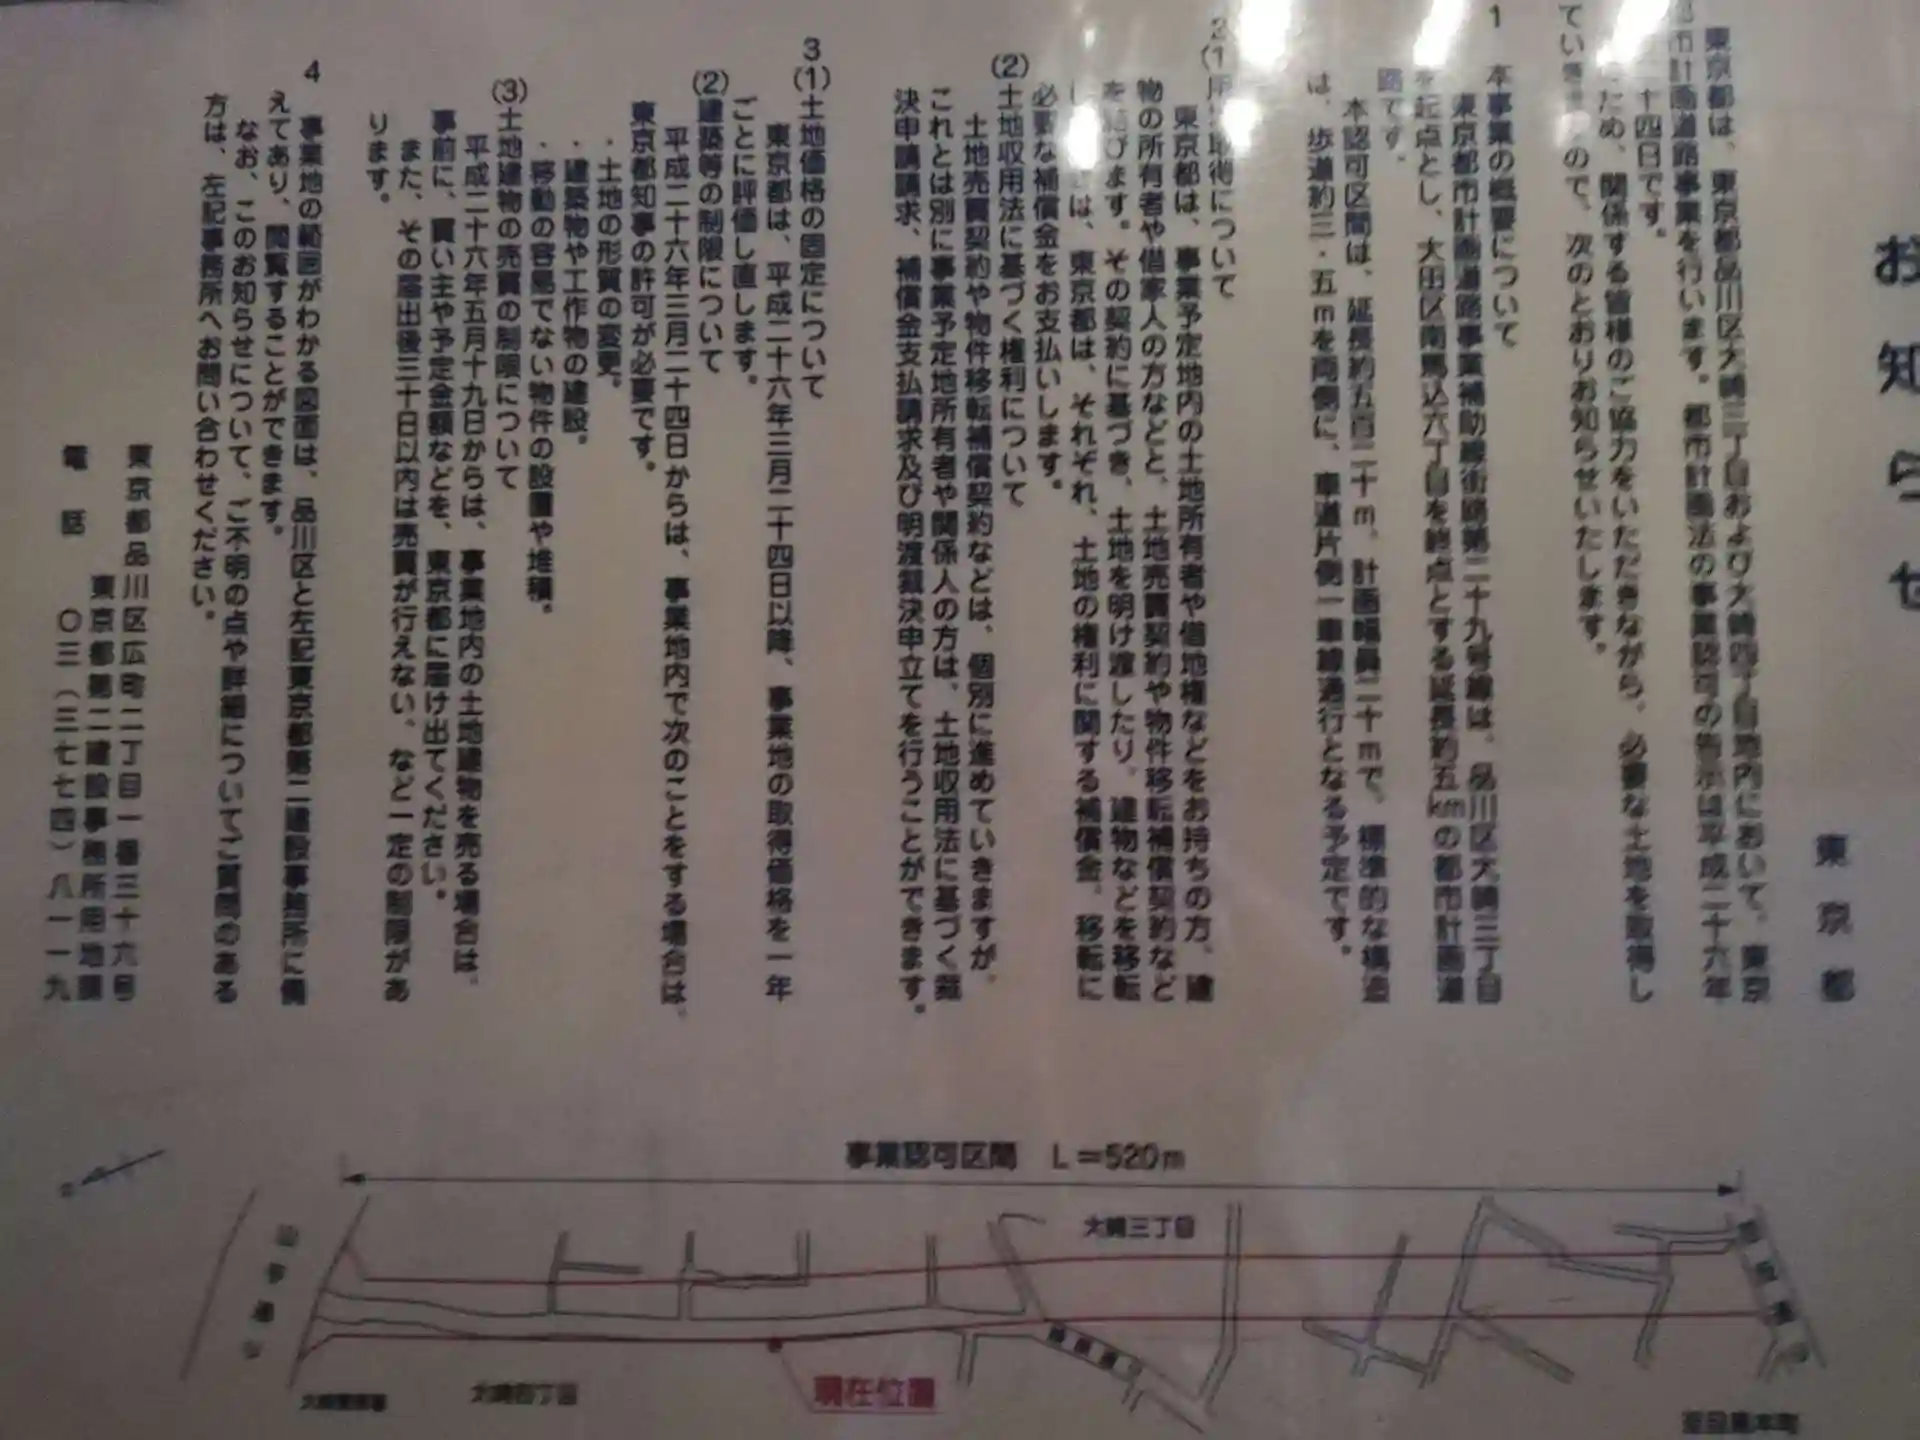 お知らせ
東京都
東京都は、東京都品川区大崎三丁目および大崎四丁目地内において、東京
都市計画道路事業を行います。都市計画法の事業認可の告示は平成二十六年
十四日です。
ため、関係する皆様のご協力をいただきながら、必要な土地を取得し
ていきますので、次のとおりお知らせいたします。
1 本事業の概要について
東京都市計画道路事業補助線街路第二十九号線は、品川区大崎三丁目
を起点とし、大田区南馬込六丁目を終点とする延長約五kmの都市計画道
路です。
本認可区間は、延長約五百二十m、計画幅員二十mで、標準的な構造
は、歩道約三・五mを両側に、車道片側一車線通行となる予定です。
2
(1) 用地取得について
東京都は、事業予定地内の土地所有者や借地権などをお持ちの方、建
物の所有者や借家人の方などと、土地売買契約や物件移転補償契約など
を結びます。その契約に基づき、土地を明け渡したり、建物などを移転
は、東京都は、それぞれ、土地の権利に関する補償金、移転に
必要な補償金をお支払いします。
(2) 土地収用法に基づく権利について
土地売買契約や物件移転補償契約などは、個別に進めていきますが、
これとは別に事業予定地所有者や関係人の方は、土地収用法に基づく裁
決申請請求、補償金支払請求及び明渡裁決申立てを行うことができます。
3
(1) 土地価格の固定について
東京都は、平成二十六年三月二十四日以降、事業地の取得価格を一年
ごとに評価し直します。
(2) 建築等の制限について
平成二十六年三月二十四日からは、事業地内で次のことをする場合は、
東京都知事の許可が必要です。
・土地の形質の変更。
・建築物や工作物の建設。
・移動の容易でない物件の設置や堆積。
(3) 土地建物の売買の制限について
平成二十六年五月十九日からは、事業地内の土地建物を売る場合は、
事前に、買い主や予定金額などを、東京都に届け出てください。
また、その届出後三十日以内は売買が行えない、など一定の制限があ
ります。
4 事業地の範囲がわかる図面は、品川区と左記東京都第二建設事務所に備
えてあり、閲覧することができます。
なお、このお知らせについて、ご不明の点や詳細についてご質問のある
方は、左記事務所へお問い合わせください。
東京都品川区広町二丁目一番三十六号
東京都第二建設事務所用地課
電話 〇三(三七七四)八一一九
事業認可区間 L=520m
大崎三丁目
山手通り
大崎警察署
大崎四丁目
現在位置